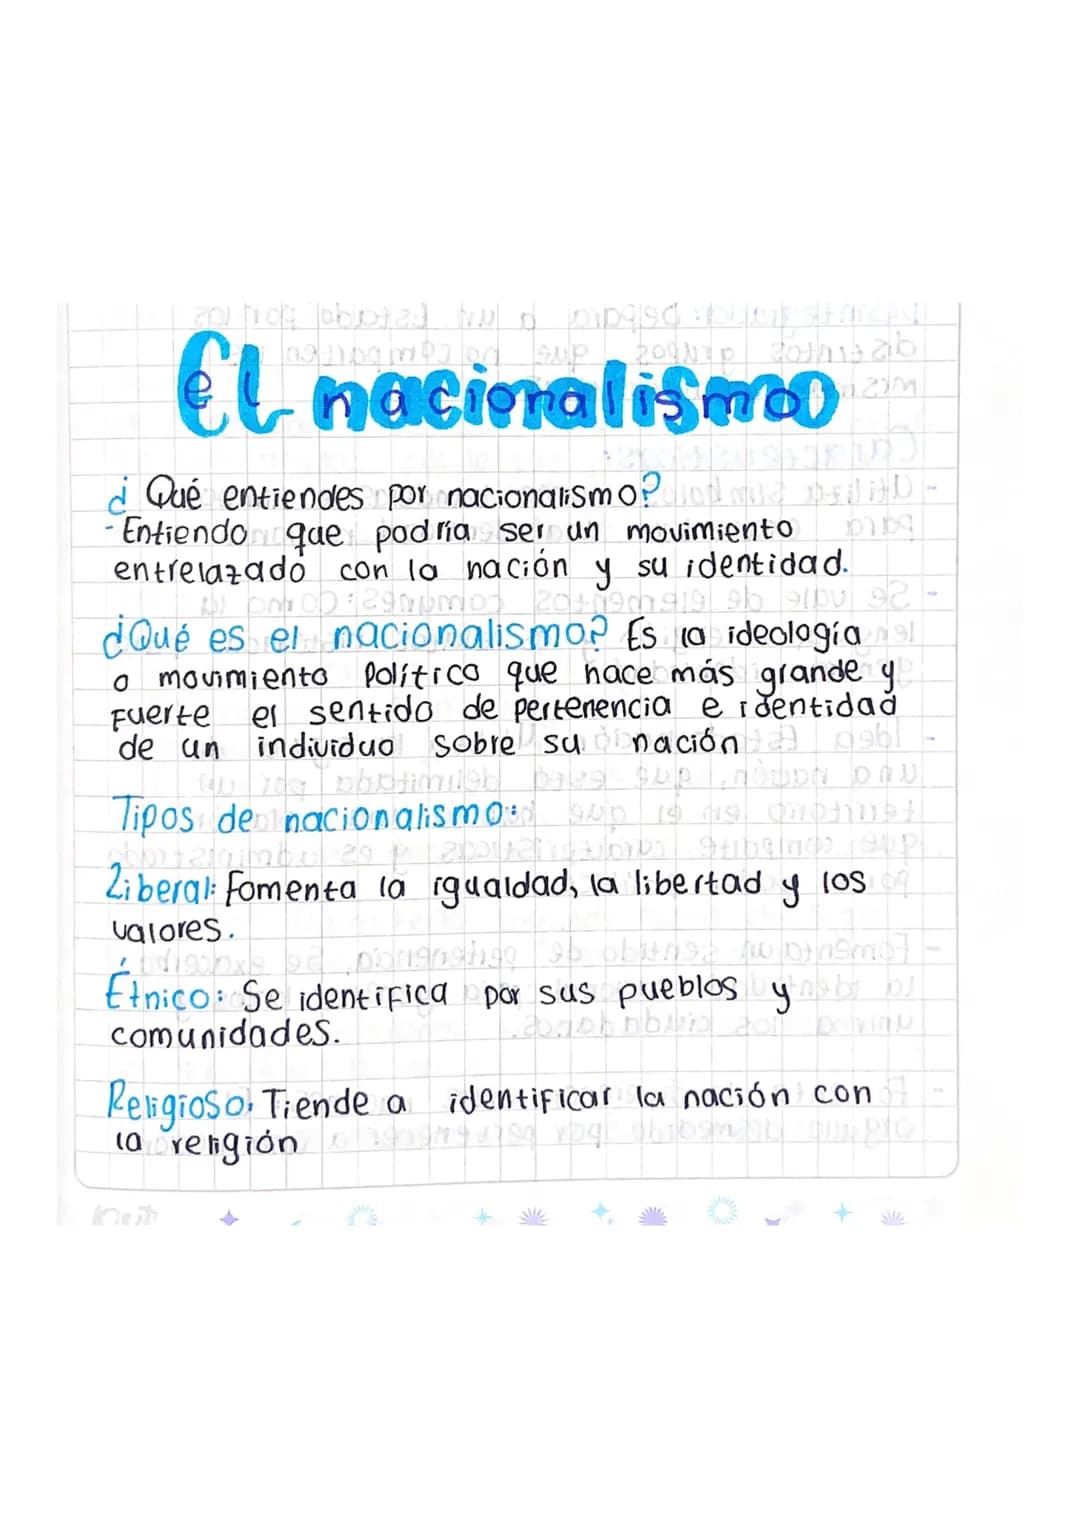 El nacionalismo
¿Qué entiendes por nacionalismo?
- Entiendo que podría ser un movimiento
entrelazado con la nación y su identidad.
¿Qué es el nacionalismo? Es la ideología
o movimiento Político que hace más grande y
Fuerte el sentido de pertenencia e identidad
de un individuo sobre su nación
Tipos de nacionalismo:
Liberal: Fomenta la igualdad, la libertad y los
valores.
Étnico: Se identifica por sus pueblos y
comunidades.
Religioso: Tiende a identificar la nación con
la religión